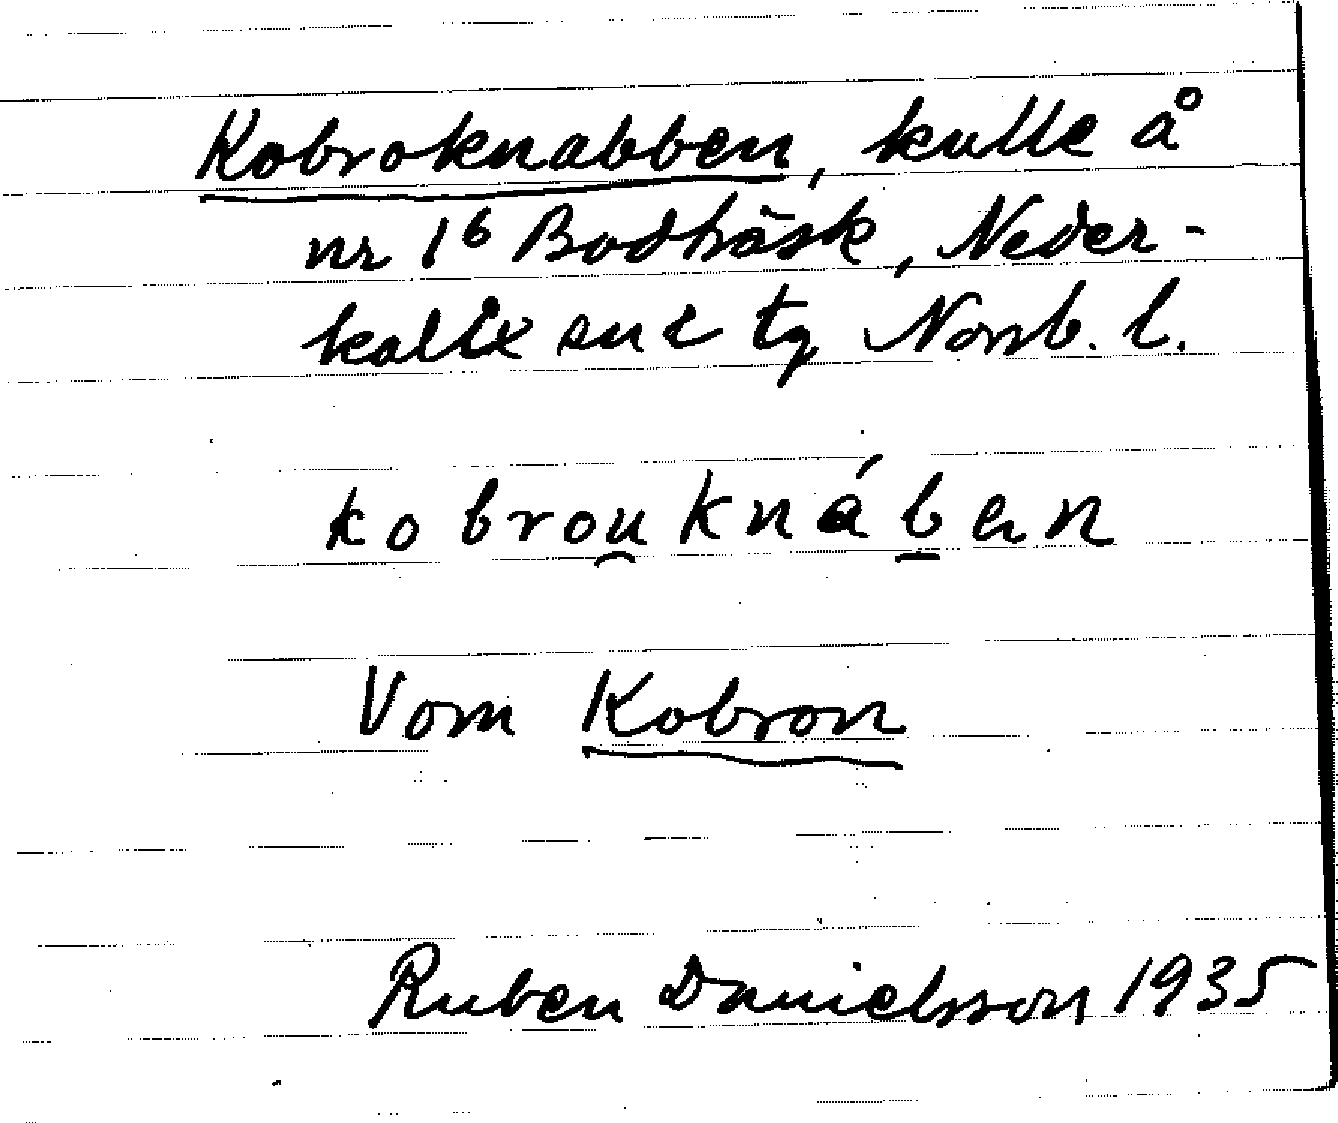 Kobroknabben, kulle å
nr 1⁶ Bodträsk, Neder-
kalix sn i tg Norrb. l.
kobrou̯knáb̲en
Vom Kobron
Ruben Danielsson 1935